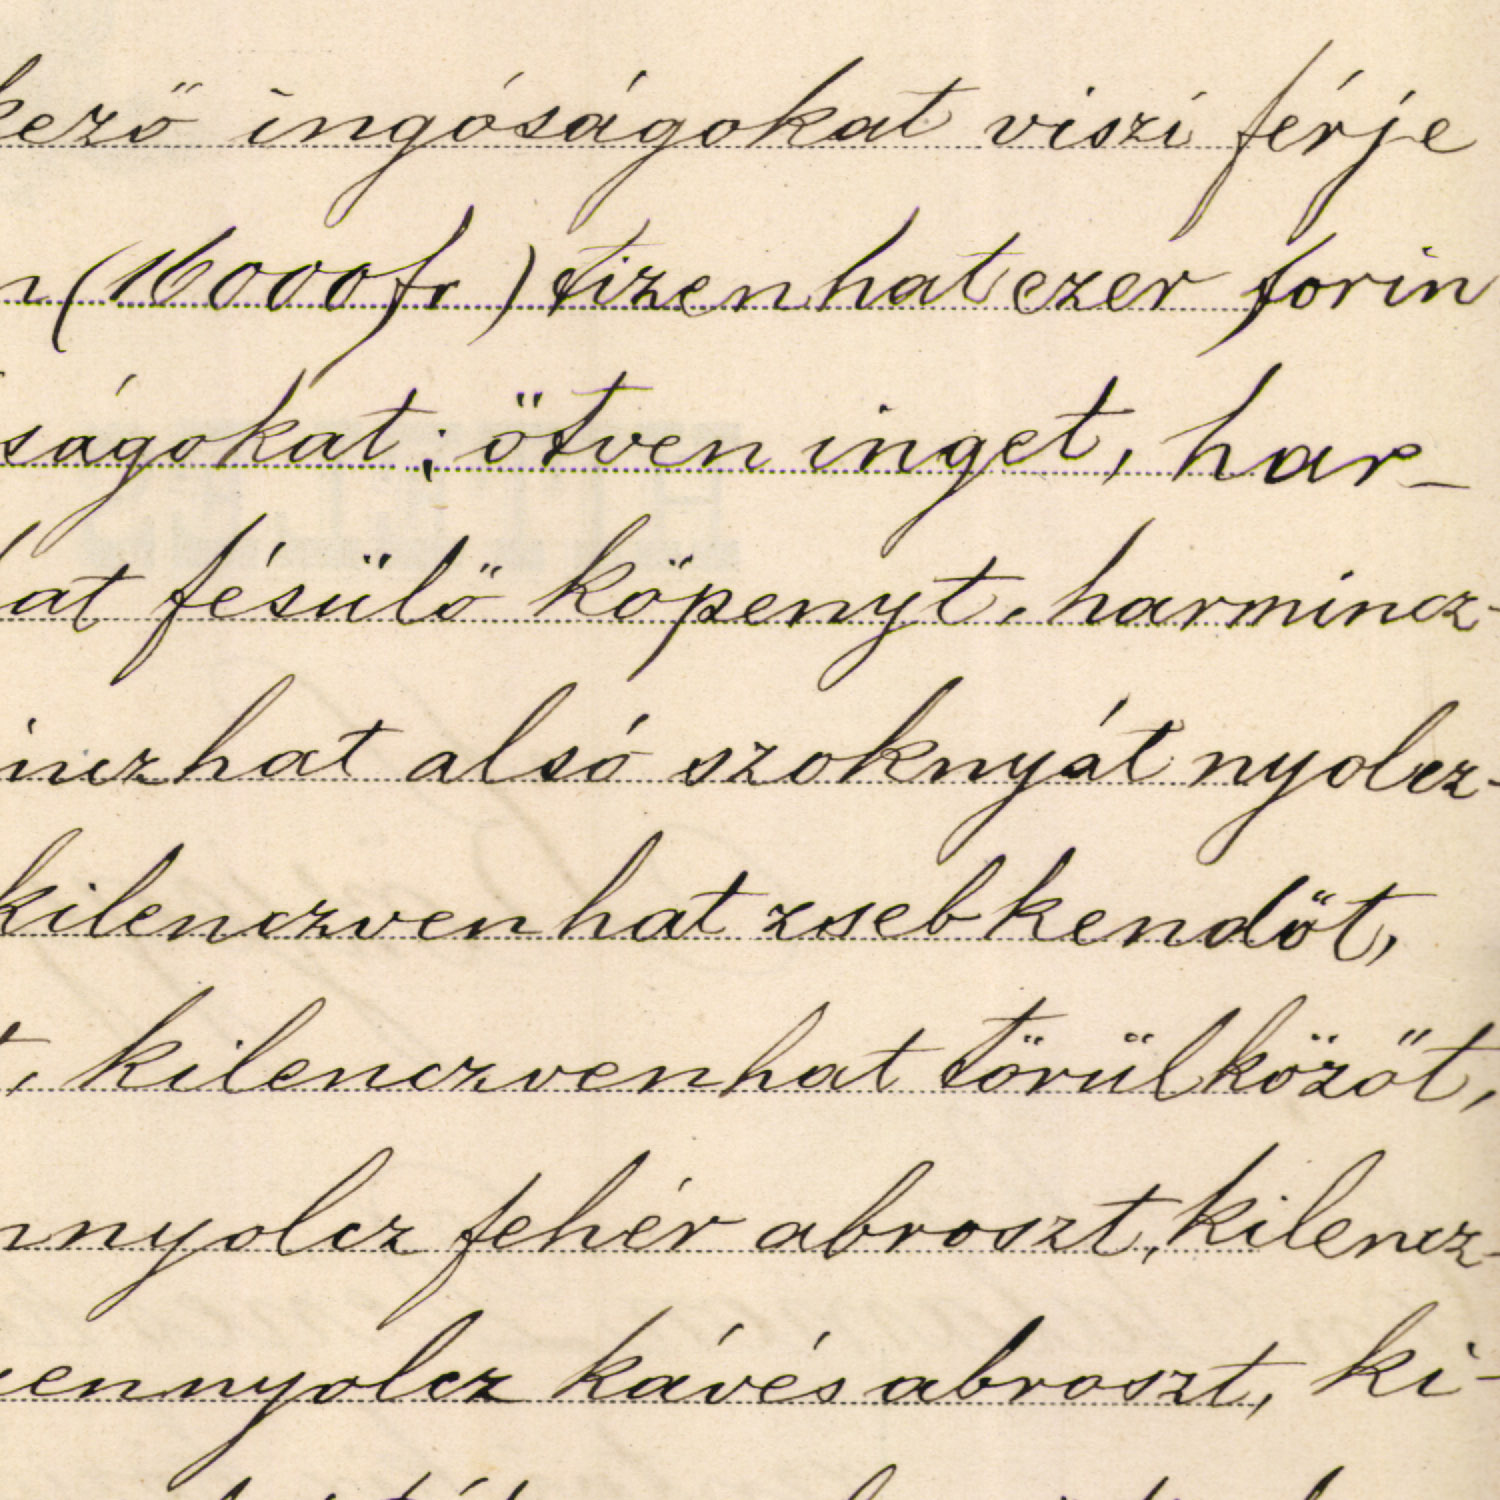 kező ingóságokat viszi férje
n (16000 fr) tizenhatezer forin
ságokat; ötven inget, har-
at fésülő köpenyt, harmincz-
inczhat alsó szoknyát nyolcz-
kilenczvenhat zsebkendőt,
t, kilenczvenhat törülközőt,
nnyolcz fehér abroszt, kilencz-
ennyolcz kávés abroszt, ki-